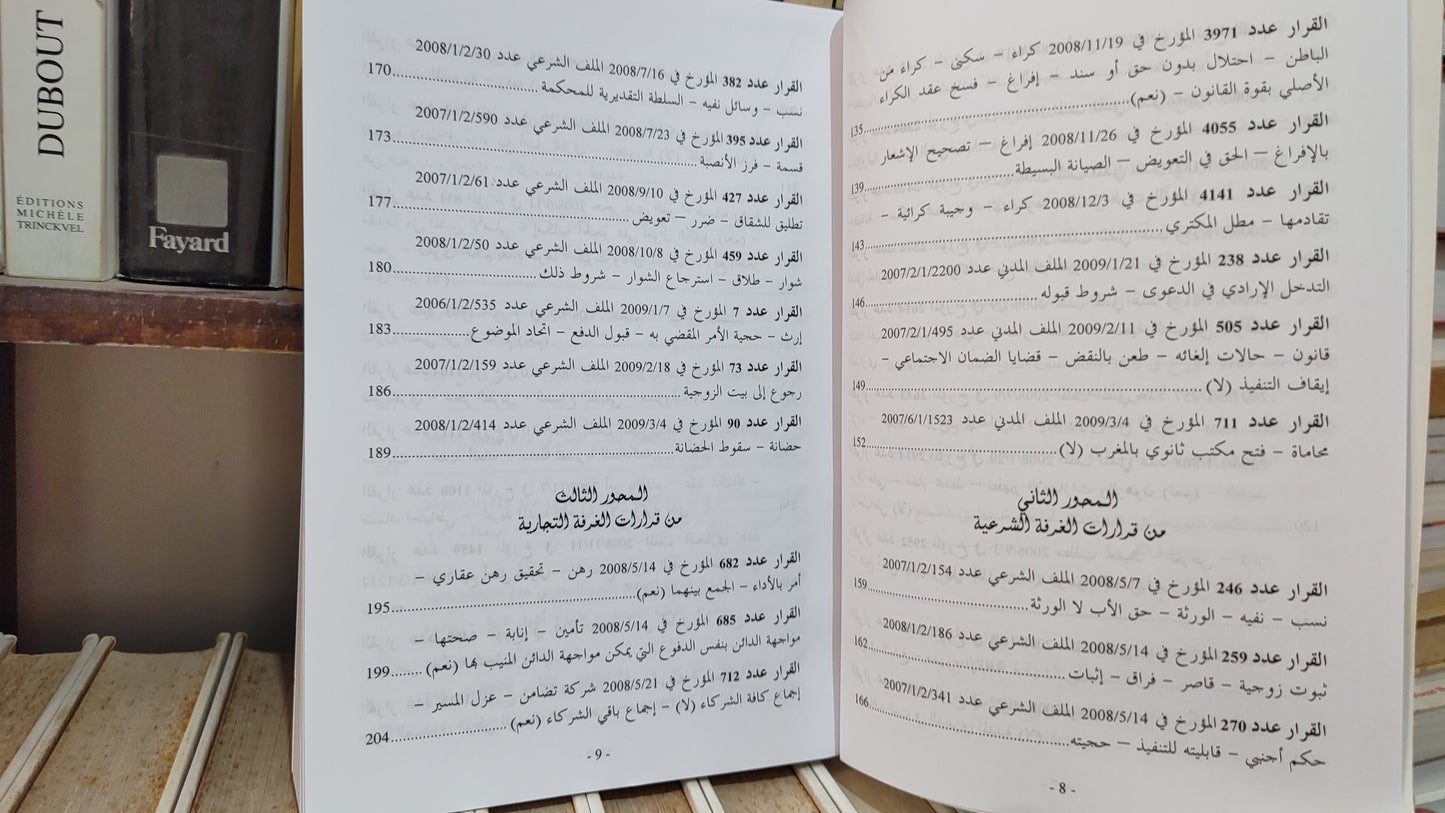 القرار عدد 3971 المؤرخ في 2008/11/19 كراء – سكنى – كراء من
الباطن – احتلال بدون حق أو سند – إفراغ – فسخ عقد الكراء
الأصلي بقوة القانون – (نعم)......135
القرار عدد 4055 المؤرخ في 2008/11/26 إفراغ – تصحيح الإشعار
بالإفراغ – الحق في التعويض – الصيانة البسيطة......139
القرار عدد 4141 المؤرخ في 2008/12/3 كراء – وجيبة كرائية –
تقادمها – مطل المكتري......143
القرار عدد 238 المؤرخ في 2009/1/21 الملف المدني عدد 2007/2/1/2200
التدخل الإرادي في الدعوى – شروط قبوله......146
القرار عدد 505 المؤرخ في 2009/2/11 الملف المدني عدد 2007/2/1/495
قانون – حالات إلغائه – طعن بالنقض – قضايا الضمان الاجتماعي –
إيقاف التنفيذ (لا)......149
القرار عدد 711 المؤرخ في 2009/3/4 الملف المدني عدد 2007/6/1/1523
محاماة – فتح مكتب ثانوي بالمغرب (لا)......152
المحور الثاني
من قرارات الغرفة الشرعية
القرار عدد 246 المؤرخ في 2008/5/7 الملف الشرعي عدد 2007/1/2/154
نسب – نفيه – الورثة – حق الأب لا الورثة......159
القرار عدد 259 المؤرخ في 2008/5/14 الملف الشرعي عدد 2008/1/2/186
ثبوت زوجية – قاصر – فراق – إثبات......162
القرار عدد 270 المؤرخ في 2008/5/14 الملف الشرعي عدد 2007/1/2/341
حكم أجنبي – قابليته للتنفيذ – حجيته......166
- 8 -
القرار عدد 382 المؤرخ في 2008/7/16 الملف الشرعي عدد 2008/1/2/30
نسب – وسائل نفيه – السلطة التقديرية للمحكمة......170
القرار عدد 395 المؤرخ في 2008/7/23 الملف الشرعي عدد 2007/1/2/590
قسمة – فرز الأنصبة......173
القرار عدد 427 المؤرخ في 2008/9/10 الملف الشرعي عدد 2007/1/2/61
تطليق للشقاق – ضرر – تعويض......177
القرار عدد 459 المؤرخ في 2008/10/8 الملف الشرعي عدد 2008/1/2/50
شوار – طلاق – استرجاع الشوار – شروط ذلك......180
القرار عدد 7 المؤرخ في 2009/1/7 الملف الشرعي عدد 2006/1/2/535
إرث – حجية الأمر المقضي به – قبول الدفع – اتحاد الموضوع......183
القرار عدد 73 المؤرخ في 2009/2/18 الملف الشرعي عدد 2007/1/2/159
رجوع إلى بيت الزوجية......186
القرار عدد 90 المؤرخ في 2009/3/4 الملف الشرعي عدد 2008/1/2/414
حضانة – سقوط الحضانة......189
المحور الثالث
من قرارات الغرفة التجارية
القرار عدد 682 المؤرخ في 2008/5/14 رهن – تحقيق رهن عقاري –
أمر بالأداء – الجمع بينهما (نعم)......195
القرار عدد 685 المؤرخ في 2008/5/14 تأمين – إنابة – صحتها –
مواجهة الدائن بنفس الدفوع التي يمكن مواجهة الدائن المنيب بها (نعم)......199
القرار عدد 712 المؤرخ في 2008/5/21 شركة تضامن – عزل المسير –
إجماع كافة الشركاء (لا) – إجماع باقي الشركاء (نعم)......204
- 9 -
DUBOUT
ÉDITIONS
MICHÈLE
TRINCKVEL
Fayard